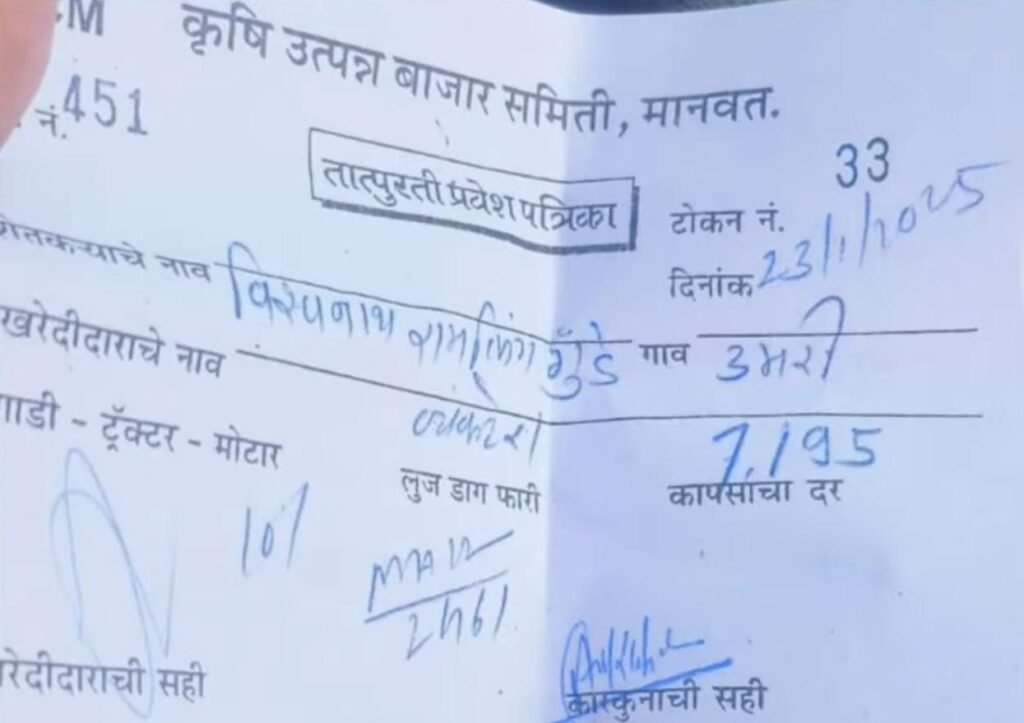 कृषि उत्पन्न बाजार समिती, मानवत.
नं. 451
33
तात्पुरती प्रवेश पत्रिका
टोकन नं.
दिनांक 23/1/2025
शेतकऱ्याचे नाव विश्वनाथ रामलिंग गुँडे गाव उमरी
खरेदीदाराचे नाव
गाडी - ट्रॅक्टर - मोटार
7,195
लुज डाग फारी कापसाचा दर
101
MH 22
2461
खरेदीदाराची सही कारकुनाची सही